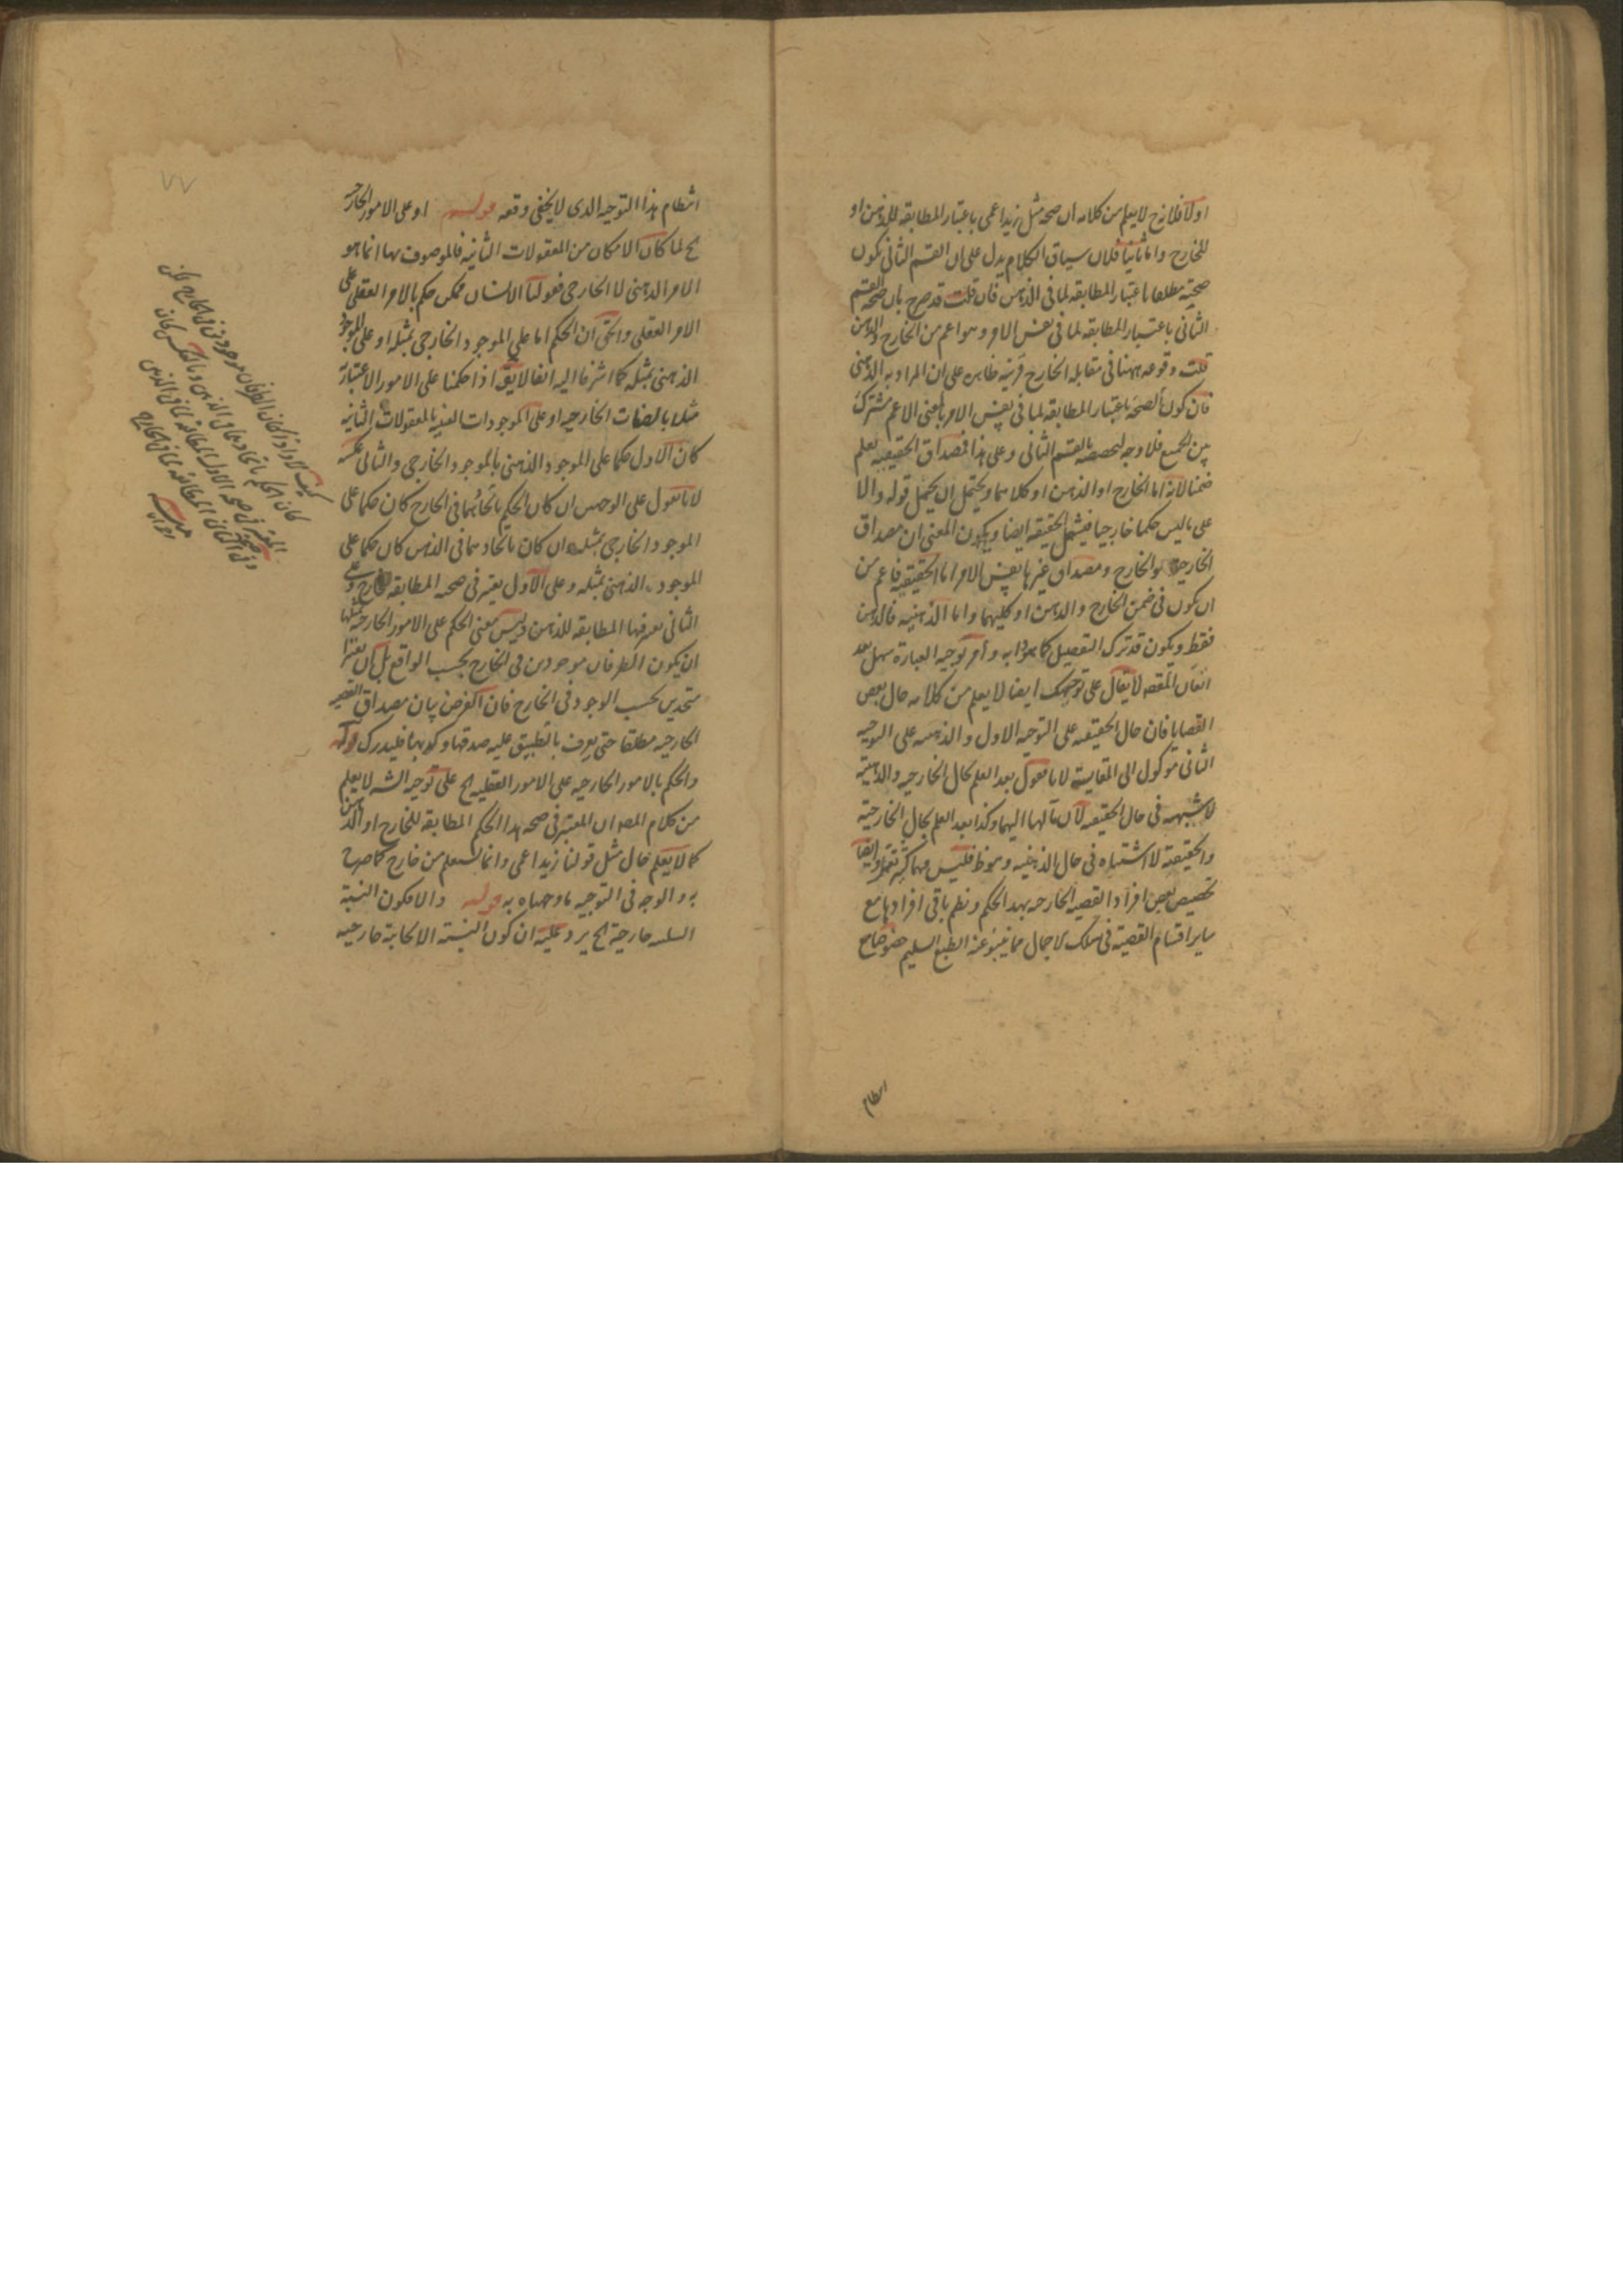 اولا فلانه ح لا يعلم من كلامه ان صحة مثل زيد اعمى باعتبار المطابقة للذهن او
للخارج واما ثانيا فلان سياق الكلام يدل على ان القسم الثانى يكون
صحته مطلقا باعتبار المطابقة لما فى الذهن فان قلت قد صرح بان صحة القسم
الثانى باعتبار المطابقة لما فى نفس الامر وهو اعم من الخارج والذهن
قلت وقوعه ههنا فى مقابلة الخارج قرينة ظاهرة على ان المراد به الذهنى
فان كون الصحة باعتبار المطابقة لما فى نفس الامر بالمعنى الاعم مشترك
بين الجميع فلا وجه لتخصيصه بالقسم الثانى وعلى هذا فمصداق الحقيقية يعلم
ضمنا لانه اما الخارج او الذهن او كلاهما ويحتمل ان يحمل قوله والا
على ما ليس حكما خارجيا فيشمل الحقيقة ايضا ويكون المعنى ان مصداق
الخارجية هو الخارج ومصداق غيرها نفس الامر اما الحقيقية فاعم من
ان يكون فى ضمن الخارج والذهن او كليهما واما الذهنية فالذهن
فقط ويكون قد ترك التفصيل كما وامر توجيه العبارة سهل بعد
اتقان المقصد لا يقال على توجيهك ايضا لا يعلم من كلامه حال بعض
القضايا فان حال الحقيقية على التوجيه الاول والذهنية على التوجيه
الثانى موكول الى المقايسة لانا نقول بعد العلم بحال الخارجية والذهنية
لا شبهة فى حال الحقيقية لان مآلها اليهما وكذا بعد العلم بحال الخارجية
والحقيقية لا اشتباه فى حال الذهنية وهو ظ فليس مهما كثير وايضا
تخصيص بعض افراد القضية الخارجية بهذا الحكم ونظم باقى افرادها مع
ساير اقسام القضية فى سلك الاجمال مما ينبو عنه الطبع السليم
انتظام
انتظام هذا التوجيه الذى لا يخفى وقعه قوله او على الامور الخارجية
الخ لما كان الامكان من المعقولات الثانية فالموصوف بها انما هو
الامر الذهنى لا الخارجى فقولنا الانسان ممكن حكم بالامر العقلى على
الامر العقلى والحق ان الحكم اما على الموجود الخارجى بمثله او على الموجود
الذهنى بمثله كما اشرنا اليه انفا لا يق اذا حكمنا على الامور الاعتبارية
مثلا بالصفات الخارجية او على الموجودات العينية بالمعقولات الثانية
كان الاول حكما على الموجود الذهنى بالموجود الخارجى والثانى عكسه
لانا نقول على الوجهين ان كان الحكم باتحادهما فى الخارج كان حكما على
الموجود الخارجى بمثله وان كان باتحادهما فى الذهن كان حكما على
الموجود الذهنى بمثله وعلى الاول يعتبر فى صحته المطابقة للخارج وعلى
الثانى يعرفها المطابقة للذهن وليس معنى الحكم على الامور الخارجية بمثلها
ان يكون الطرفان موجودين فى الخارج بحسب الواقع بل ان يعتبرا
متحدين بحسب الوجود فى الخارج فان الغرض بيان مصداق القضية
الخارجية مطلقا حتى يعرف بالتطبيق عليه صدقها وكذبها فليدرك قوله
والحكم بالامور الخارجية على الامور العقلية الخ على توجيه الشه لا يعلم
من كلام المصه ان المعتبر فى صحة هذا الحكم المطابقة للخارج او الذهن
كما لا يعلم حال مثل قولنا زيد اعمى وانما يستعلم من خارج كما صرح
به والوجه فى التوجيه ما وجهناه به قوله والا فكون النسبة
السلبية خارجية الخ يرد عليه ان كون النسبة الايجابية خارجية
٧٧
كيف لا واذا كان الطرفان موجودين فى الخارج لكن
كان الحكم باتحادهما فى الذهن وبالعكس كان
المعتبر فى صحة الاول المطابقة لما فى الذهن
وفى الثانى المطابقة لما فى الخارج